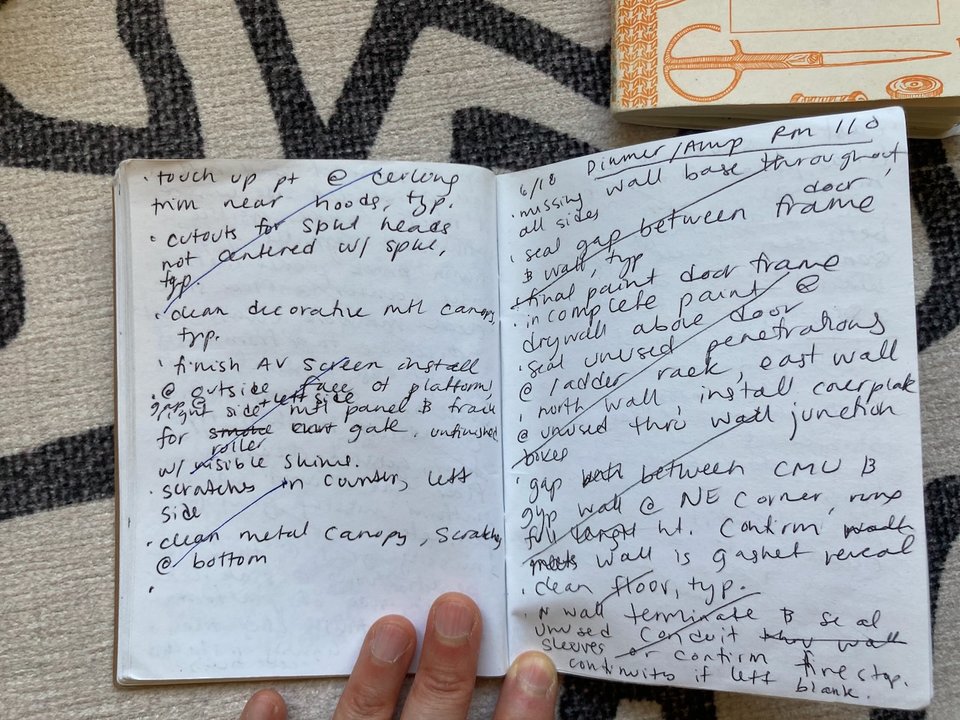 · touch up pt @ ceiling
trim near hoods, typ.
· cutouts for spkl heads
not centered w/ spkl,
typ.
· clean decorative mtl canopy
typ.
· finish AV screen install
· @ outside face of platform,
gap @ right side + left side mtl panel B track
for smoke gate, unfinished
roller
w/ visible shims.
· scratches in counter, left
side
· clean metal canopy, scratches
@ bottom
·
6/18 Dimmer/Amp Rm 110
· missing wall base throughout
all sides
· seal gap between door,
frame
B wall, typ
· final paint door frame
· incomplete paint @
drywall above door
· seal unused penetrations
@ ladder rack, east wall
· north wall, install coverplate
@ unused thru wall junction
boxes
· gap between CMU B
gyp wall @ NE corner, runs
full height ht. Confirm
wall is gasket reveal
· clean floor, typ.
· N wall terminate B seal
unused conduit thru wall
sleeves or confirm firestop.
continuity if left blank.